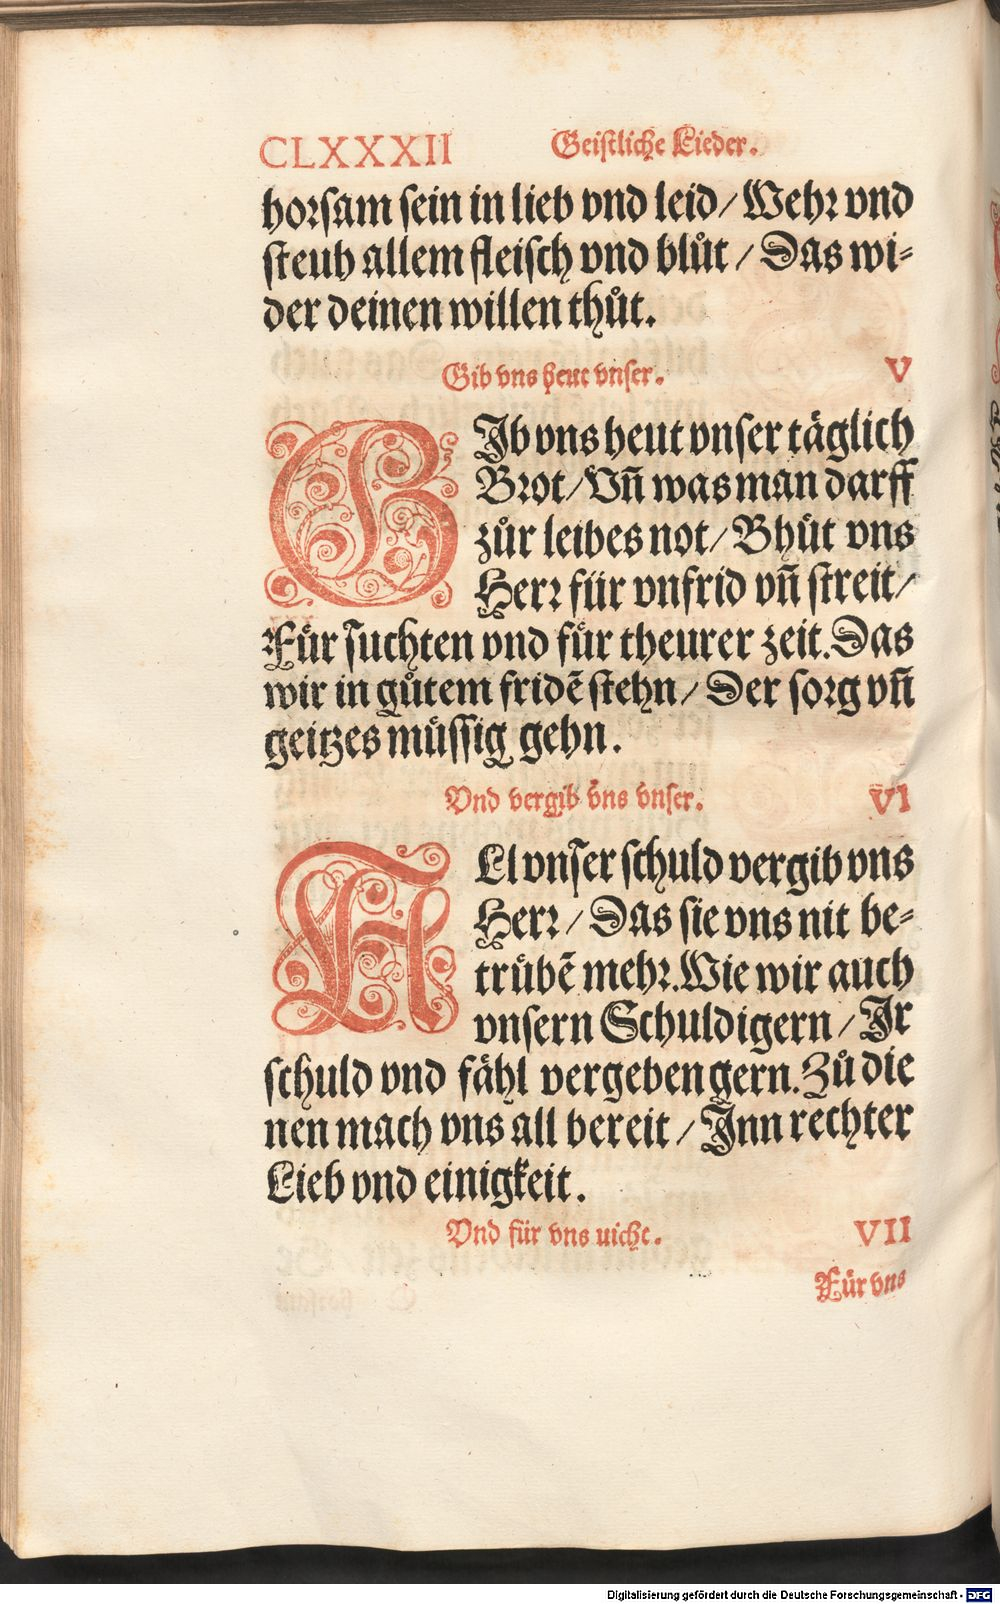 CLXXXII Geistliche Lieder.
horsam sein in lieb vnd leid/ Wehr vnd
steuh allem fleisch vnd blůt/ Das wi⸗
der deinen willen thůt.
Gib vns heut vnser. V
GIb vns heut vnser täglich
Brot/ Vñ was man darff
zůr leibes not/ Bhůt vns
Herr für vnfrid vñ streit/
Für suchten vnd für theurer zeit. Das
wir in gůtem fridẽ stehn/ Der sorg vñ
geitzes müssig gehn.
Vnd vergib vns vnser. VI
ALl vnser schuld vergib vns
Herr/ Das sie vns nit be⸗
trübẽ mehr. Wie wir auch
vnsern Schuldigern/ Ir
schuld vnd fähl vergeben gern. Zů die
nen mach vns all bereit/ Inn rechter
Lieb vnd einigkeit.
Vnd für vns nicht. VII
Für vns
Digitalisierung gefördert durch die Deutsche Forschungsgemeinschaft - DFG